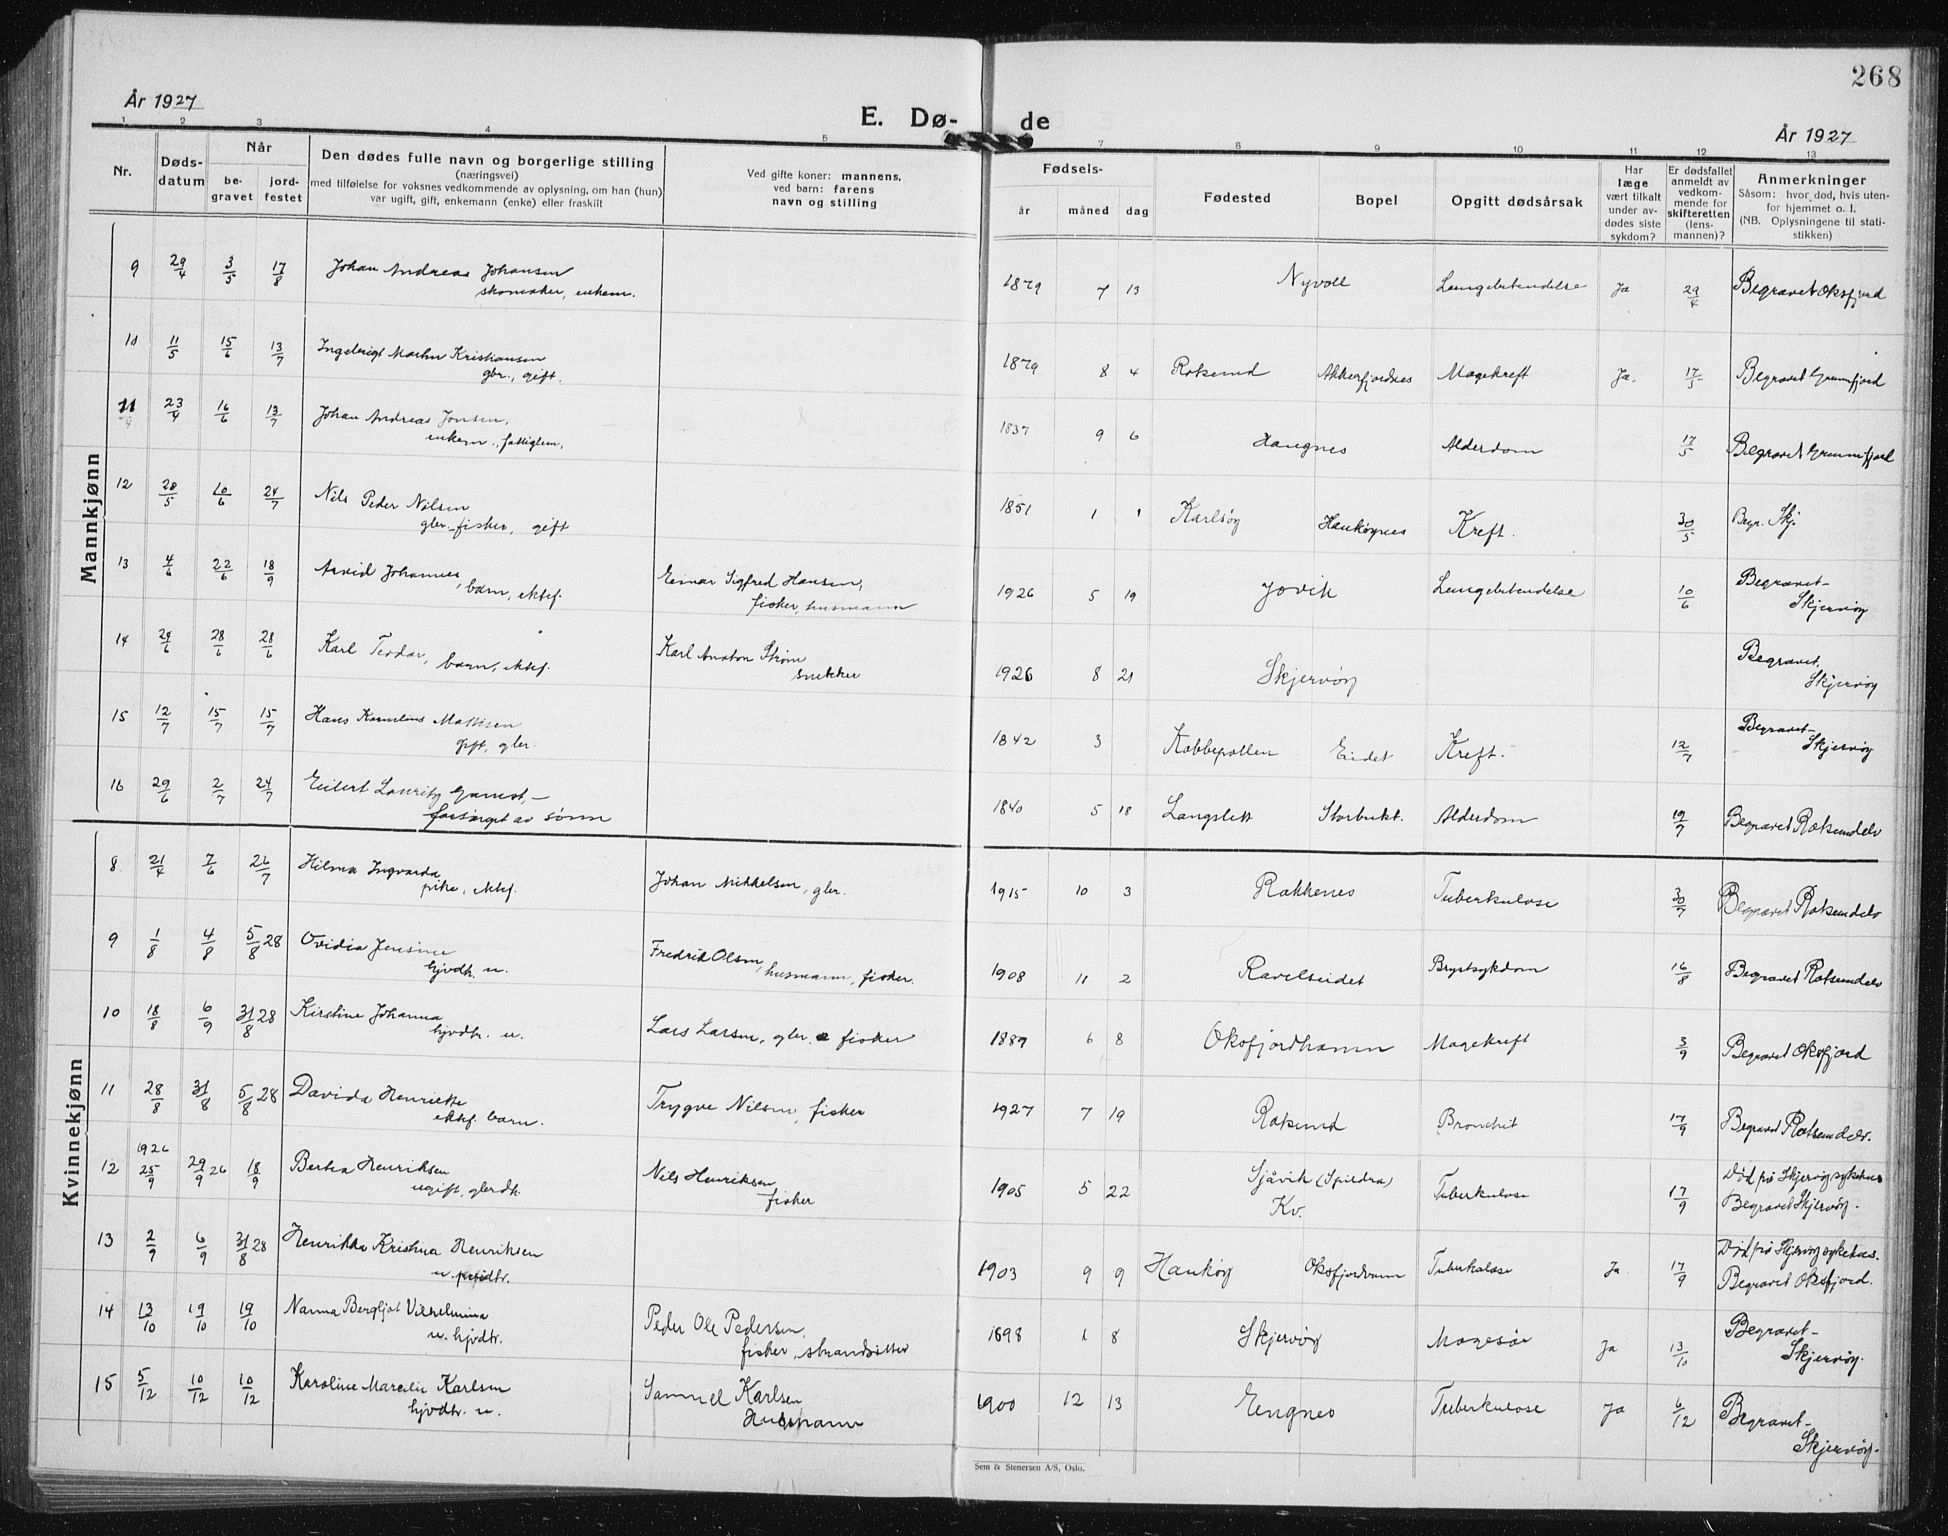 268
År 1927
E. Dø-de
År 1927
1 2 3 4 5 7 8 9 10 11 12 13
Nr.
Døds-
datum
Når
be-
gravet
jord-
festet
Den dødes fulle navn og borgerlige stilling
(næringsvei)
med tilføielse for voksnes vedkommende av oplysning, om han (hun)
var ugift, gift, enkemann (enke) eller fraskilt
Ved gifte koner: mannens,
ved barn: farens
navn og stilling
Fødsels-
år måned dag
Fødested
Bopel
Opgitt dødsårsak
Har
læge
vært tilkalt
under av-
dødes siste
sykdom?
Er dødsfallet
anmeldt av
vedkom-
mende for
skifteretten
(lens-
mannen)?
Anmerkninger
Såsom: hvor død, hvis uten-
for hjemmet o. l.
(NB. Oplysningene til stati-
stikken)
Mannkjønn
9 29/4 3/5 17/8 Johan Andreas Johansen
skomaker, enkem.
1879 7 13 Nyvoll Lungebetendelse Ja 29/4 Begravet Oksfjord
10 11/5 15/6 13/7 Ingebrigt Martin Kristiansen
gbr., gift.
1879 8 4 Rotsund Akkarfjordnes Magekreft Ja. 17/5 Begravet
11 23/4 16/6 13/7 Johan Andreas Jonsen,
enkem., fattiglem,
1837 9 6 Hangnes Alderdom 17/5 Begravet
12 28/5 10/6 24/7 Nils Peder Nilsen
gbr. fisker, gift
1851 1 1 Karlsøy Haukøynes Kreft. 30/5 Begr. Skj.
13 4/6 22/6 18/9 Arvid Johannes,
barn, ektef.
Einar Sigfred Hansen,
fisker, husmann
1926 5 19 Jøvik Lungebetendelse 10/6 Begravet
Skjervøy
14 24/6 28/6 28/6 Karl Teodor,
barn, ektef.
Karl Anton Strøm
snekker
1926 8 21 Skjervøy Begravet,
Skjervøy
15 12/7 15/7 15/7 Hans Kornelius Mathisen
gift, gbr.
1842 3 Kobbepollen Eidet Kreft. 12/7 Begravet
Skjervøy
16 29/6 2/7 24/7 Eilert Lauritz
forsørget av sønn
1840 5 18 Langslett Storbukt. Alderdom 19/7 Begravet Rotsundelv
Kvinnekjønn
8 21/4 7/6 26/7 Hilma Ingvarda
pike, ektef.
Johan Mikkelsen, gbr.
1915 10 3 Rakkenes Tuberkulose 30/7 Begravet Rotsundelv
9 1/8 4/8 5/8 28 Ovidia Jensine
hjvdtr. u.
Fredrik Olsen,
husmann, fisker.
1908 11 2 Ravelseidet Brystsykdom 16/8 Begravet Rotsundelv
10 18/8 6/9 31/8 28 Kirstine Johanna
hjvdtr. u.
Lars Larsen, gbr. & fisker
1887 6 8 Oksfjordhamn Magekreft 3/9 Begravet Oksfjord
11 28/8 31/8 5/8 28 Davida Henriette
ektef. barn.
Trygve Nilsen, fisker
1927 7 19 Rotsund Bronchit 17/9 Begravet Rotsundelv.
12 1926 25/9 29/9 26 18/9 Bertea Henriksen
ugift, gbrdtr.
Nils Henriksen,
fisker
1905 5 22 Sjåvik (Spildra)
Kv.
Tuberkulose 17/9 Død på Skjervøy sykehus
Begravet Skjervøy.
13 2/9 6/9 31/8 28 Henrikka Kristina Henriksen
u.
1903 9 9 Haukøy Oksfjordvann Tuberkulose Ja 17/9 Død på Skjervøy sykehus.
Begravet Oksfjord.
14 13/10 19/10 19/10 Nanna Bergljot Vilhelmina
u. hjvdtr.
Peder Ole Pedersen,
fisker, strandsitter
1898 1 8 Skjervøy Magesår Ja 13/10 Begravet
Skjervøy.
15 5/12 10/12 10/12 Karoline Marelie Karlsen
hjvdtr. u.
Samuel Karlsen
Husmann
1900 12 13 Engnes Tuberkulose Ja 6/12 Begravet
Skjervøy.
Sem & Stenersen A/S, Oslo.